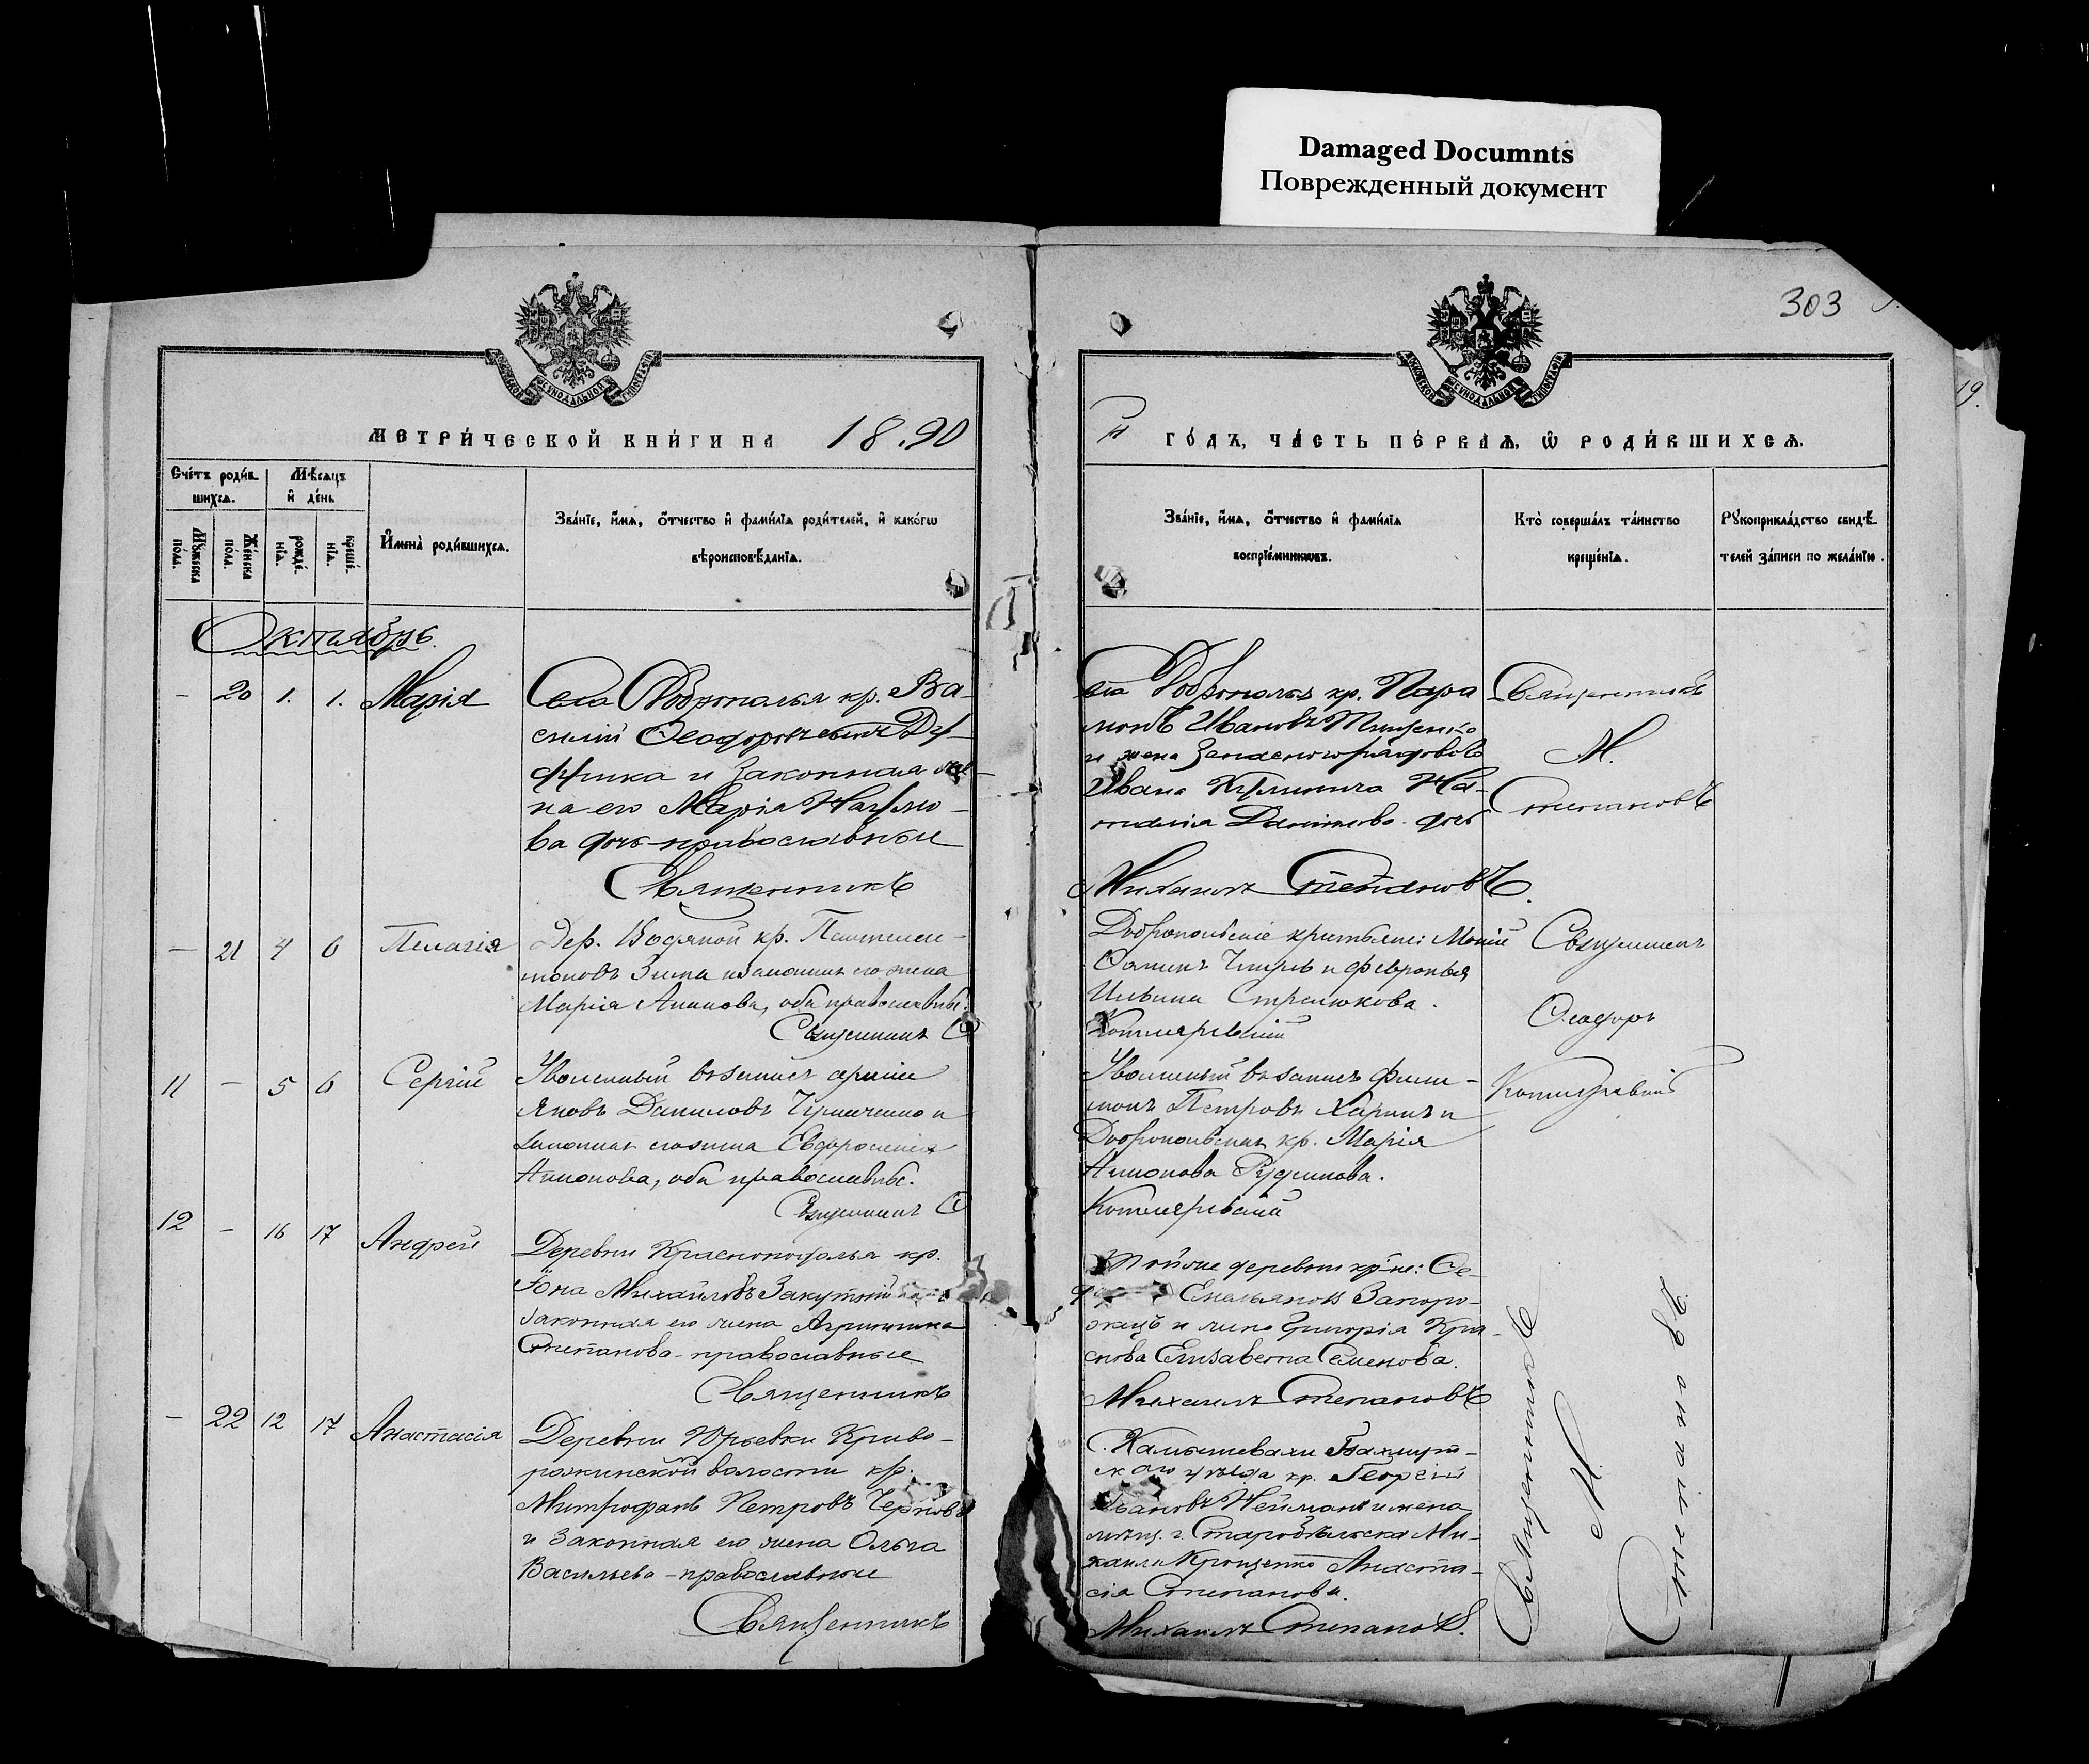 Damaged Documnts
Поврежденный документ
303
19.
МЕТРИЧЕСКОЙ КНИГИ НА 18.90
й ГОДЪ, ЧАСТЬ ПЕРВАЯ, Ѡ РОДИВШИХСЯ.
Счетъ родив
шихся.
Мѣсяцъ
и день
Мужеска
пола.
Женска
пола.
рожде
нія.
креще
нія.
Имена родившихся.
Званіе, имя, отчество и фамилія родителей, и какогѡ
вѣроисповѣданія.
Званіе, имя, отчество и фамилія
воспріемникѡвъ.
Кто совершалъ таинство
крещенія.
Рукоприкладство свидѣ
телей записи по желанію.
Октябрь.
– 20 1. 1. Марія
Села Доброполья кр. Ва-
силій Ѳеодоровъ
и законная же-
на его Марія Наумо-
ва оба православные
Священникъ
Села Доброполья кр. Пара
монъ Ивановъ Тищенко
и жена запасного рядового
Ивана На-
талія Данилова.
Михаилъ Степановъ.
Священникъ
М.
Степановъ
– 21 4 6 Пелагія
Дер. Водяной кр. Пантелеи-
моновъ Зима и законная его жена
Марія, оба православные.
Священникъ Ѳ
Добропольскіе крестьяне: Моисей
и Февронья
Ильина Стрелюкова.
Котляревскій
Священникъ
Ѳеодоръ
Котляревскій
11 – 5 6 Сергій
Уволенный въ запасъ арміи
Яковъ Даниловъ и
законная его жена Евфросинія
Антонова, оба православные.
Священникъ Ѳ
Уволенный въ запасъ Фили-
монъ Петровъ и
Добропольская кр. Марія
Антонова Рудикова.
Котляревскій
12 – 16 17 Андрей
Деревни Красноподолья кр.
Іона Михайловъ Закутній
законная его жена Агриппина
Степанова – православные
Священникъ
Той же деревни кр-не: Се-
Емельяновъ Запоро-
жецъ и жена Григорія Кра
снова Елизавета Семенова.
Михаилъ Степановъ
– 22 12 17 Анастасія
Деревни Юрьевки Криво-
рожинской волости кр.
Митрофанъ Петровъ Черновъ
и законная его жена Ольга
Васильева – православные
Священникъ
С. Камышевахи Бахмут-
скаго уѣзда кр. Георгій
Ивановъ Нейманъ и жена
мѣщ. г. Старобѣльска Ми-
хаила Анаста-
сія Степанова.
Михаилъ Степановъ.
Священникъ
М.
Степановъ.